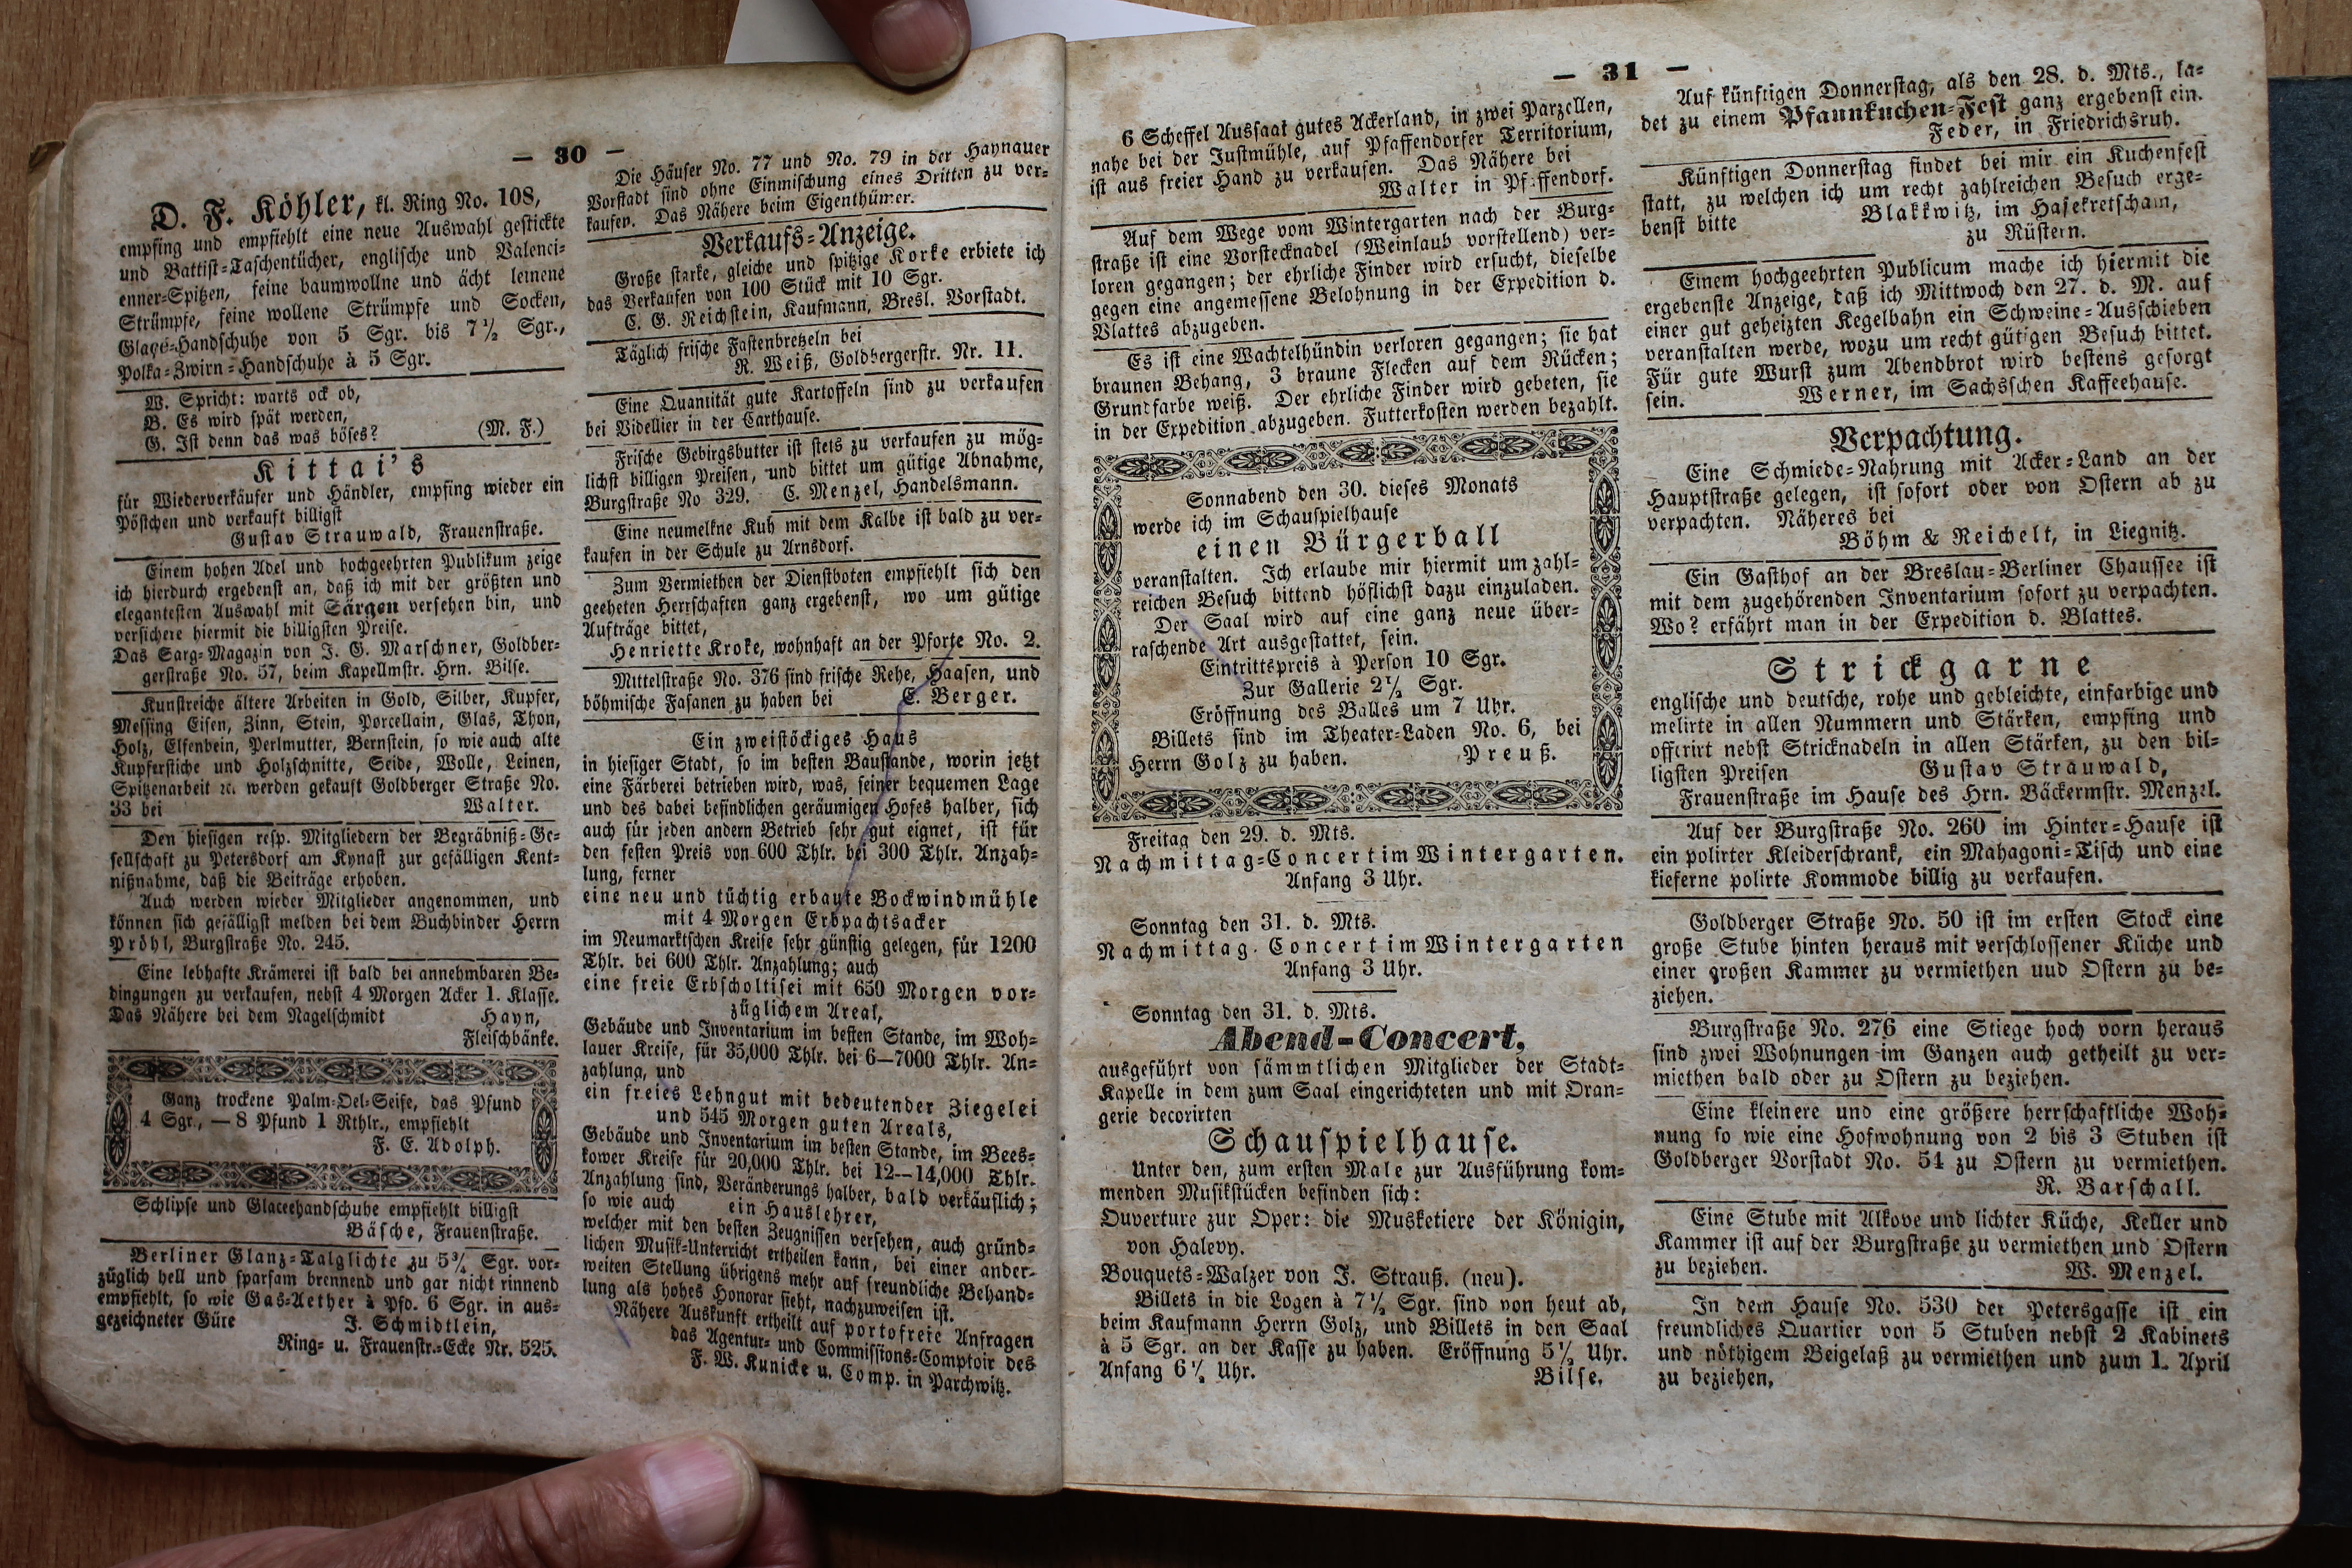 — 30 —
D. F. Köhler, kl. Ring No. 108,
empfing und empfiehlt eine neue Auswahl gestickte
und Battist=Taschentücher, englische und Valenci=
enner=Spitzen, feine baumwollne und ächt leinene
Strümpfe, feine wollene Strümpfe und Socken,
Glaçé=Handschuhe von 5 Sgr. bis 7½ Sgr.,
Polka=Zwirn=Handschuhe à 5 Sgr.
W. Spricht: warts ock ob,
B. Es wird spät werden,
G. Ist denn das was böses? (M. F.)
Kittai's
für Wiederverkäufer und Händler, empfing wieder ein
Pöstchen und verkauft billigst
Gustav Strauwald, Frauenstraße.
Einem hohen Adel und hochgeehrten Publikum zeige
ich hierdurch ergebenst an, daß ich mit der größten und
elegantesten Auswahl mit Särgen versehen bin, und
versichere hiermit die billigsten Preise.
Das Sarg=Magazin von J. G. Marschner, Goldber=
gerstraße No. 57, beim Kapellmstr. Hrn. Bilse.
Kunstreiche ältere Arbeiten in Gold, Silber, Kupfer,
Messing Eisen, Zinn, Stein, Porcellain, Glas, Thon,
Holz, Elfenbein, Perlmutter, Bernstein, so wie auch alte
Kupferstiche und Holzschnitte, Seide, Wolle, Leinen,
Spitzenarbeit ꝛc. werden gekauft Goldberger Straße No.
33 bei Walter.
Den hiesigen resp. Mitgliedern der Begräbniß=Ge=
sellschaft zu Petersdorf am Kynast zur gefälligen Kent=
nißnahme, daß die Beiträge erhoben.
Auch werden wieder Mitglieder angenommen, und
können sich gefälligst melden bei dem Buchbinder Herrn
Pröhl, Burgstraße No. 245.
Eine lebhafte Krämerei ist bald bei annehmbaren Be=
dingungen zu verkaufen, nebst 4 Morgen Acker 1. Klasse.
Das Nähere bei dem Nagelschmidt Hayn,
Fleischbänke.
Ganz trockene Palm=Oel=Seife, das Pfund
4 Sgr., — 8 Pfund 1 Rthlr., empfiehlt
F. E. Adolph.
Schlipse und Glaceehandschuhe empfiehlt billigst
Bäsche, Frauenstraße.
Berliner Glanz=Talglichte zu 5¾ Sgr. vor=
züglich hell und sparsam brennend und gar nicht rinnend
empfiehlt, so wie Gas=Aether à Pfd. 6 Sgr. in aus=
gezeichneter Güte J. Schmidtlein,
Ring= u. Frauenstr.=Ecke Nr. 525.
Die Häuser No. 77 und No. 79 in der Haynauer
Vorstadt sind ohne Einmischung eines Dritten zu ver=
kaufen. Das Nähere beim Eigenthümer.
Verkaufs=Anzeige.
Große starke, gleiche und spitzige Korke erbiete ich
das Verkaufen von 100 Stück mit 10 Sgr.
C. G. Reichstein, Kaufmann, Bresl. Vorstadt.
Täglich frische Fastenbretzeln bei
R. Weiß, Goldbergerstr. Nr. 11.
Eine Quantität gute Kartoffeln sind zu verkaufen
bei Videllier in der Carthause.
Frische Gebirgsbutter ist stets zu verkaufen zu mög=
lichst billigen Preisen, und bittet um gütige Abnahme,
Burgstraße No 329. C. Menzel, Handelsmann.
Eine neumelkne Kuh mit dem Kalbe ist bald zu ver=
kaufen in der Schule zu Arnsdorf.
Zum Vermiethen der Dienstboten empfiehlt sich den
geeheten Herrschaften ganz ergebenst, wo um gütige
Aufträge bittet,
Henriette Kroke, wohnhaft an der Pforte No. 2.
Mittelstraße No. 376 sind frische Rehe, Haasen, und
böhmische Fasanen zu haben bei E. Berger.
Ein zweistöckiges Haus
in hiesiger Stadt, so im besten Baustande, worin jetzt
eine Färberei betrieben wird, was, seiner bequemen Lage
und des dabei befindlichen geräumigen Hofes halber, sich
auch für jeden andern Betrieb sehr gut eignet, ist für
den festen Preis von 600 Thlr. bei 300 Thlr. Anzah=
lung, ferner
eine neu und tüchtig erbaute Bockwindmühle
mit 4 Morgen Erbpachtsacker
im Neumarktschen Kreise sehr günstig gelegen, für 1200
Thlr. bei 600 Thlr. Anzahlung; auch
eine freie Erbscholtisei mit 650 Morgen vor=
züglichem Areal,
Gebäude und Inventarium im besten Stande, im Woh=
lauer Kreise, für 35,000 Thlr. bei 6—7000 Thlr. An=
zahlung, und
ein freies Lehngut mit bedeutender Ziegelei
und 545 Morgen guten Areals,
Gebäude und Inventarium im besten Stande, im Bees=
kower Kreise für 20,000 Thlr. bei 12—14,000 Thlr.
Anzahlung sind, Veränderungs halber, bald verkäuflich;
so wie auch ein Hauslehrer,
welcher mit den besten Zeugnissen versehen, auch gründ=
lichen Musik=Unterricht ertheilen kann, bei einer ander=
weiten Stellung übrigens mehr auf freundliche Behand=
lung als hohes Honorar sieht, nachzuweisen ist.
Nähere Auskunft ertheilt auf portofreie Anfragen
das Agentur= und Commissions=Comptoir des
F. W. Kunicke u. Comp. in Parchwitz.
— 31 —
6 Scheffel Aussaat gutes Ackerland, in zwei Parzellen,
nahe bei der Justmühle, auf Pfaffendorfer Territorium,
ist aus freier Hand zu verkaufen. Das Nähere bei
Walter in Pfaffendorf.
Auf dem Wege vom Wintergarten nach der Burg=
straße ist eine Vorstecknadel (Weinlaub vorstellend) ver=
loren gegangen; der ehrliche Finder wird ersucht, dieselbe
gegen eine angemessene Belohnung in der Expedition d.
Blattes abzugeben.
Es ist eine Wachtelhündin verloren gegangen; sie hat
braunen Behang, 3 braune Flecken auf dem Rücken;
Grundfarbe weiß. Der ehrliche Finder wird gebeten, sie
in der Expedition abzugeben. Futterkosten werden bezahlt.
Sonnabend den 30. dieses Monats
werde ich im Schauspielhause
einen Bürgerball
veranstalten. Ich erlaube mir hiermit um zahl=
reichen Besuch bittend höflichst dazu einzuladen.
Der Saal wird auf eine ganz neue über=
raschende Art ausgestattet, sein.
Eintrittspreis à Person 10 Sgr.
Zur Gallerie 2½ Sgr.
Eröffnung des Balles um 7 Uhr.
Billets sind im Theater=Laden No. 6, bei
Herrn Golz zu haben. Preuß.
Freitag den 29. d. Mts.
Nachmittag=Concert im Wintergarten.
Anfang 3 Uhr.
Sonntag den 31. d. Mts.
Nachmittag. Concert im Wintergarten
Anfang 3 Uhr.
Sonntag den 31. d. Mts.
Abend=Concert,
ausgeführt von sämmtlichen Mitglieder der Stadt=
Kapelle in dem zum Saal eingerichteten und mit Oran=
gerie decorirten
Schauspielhause.
Unter den, zum ersten Male zur Ausführung kom=
menden Musikstücken befinden sich:
Ouverture zur Oper: die Musketiere der Königin,
von Halevy.
Bouquets=Walzer von J. Strauß. (neu).
Billets in die Logen à 7½ Sgr. sind von heut ab,
beim Kaufmann Herrn Golz, und Billets in den Saal
à 5 Sgr. an der Kasse zu haben. Eröffnung 5½ Uhr.
Anfang 6½ Uhr. Bilse.
Auf künftigen Donnerstag, als den 28. d. Mts., la=
det zu einem Pfannkuchen=Fest ganz ergebenst ein.
Feder, in Friedrichsruh.
Künftigen Donnerstag findet bei mir ein Kuchenfest
statt, zu welchen ich um recht zahlreichen Besuch erge=
benst bitte Blakkwitz, im Hasekretscham,
zu Rüstern.
Einem hochgeehrten Publicum mache ich hiermit die
ergebenste Anzeige, daß ich Mittwoch den 27. d. M. auf
einer gut geheizten Kegelbahn ein Schweine=Ausschieben
veranstalten werde, wozu um recht gütigen Besuch bittet.
Für gute Wurst zum Abendbrot wird bestens gesorgt
sein. Werner, im Sachsschen Kaffeehause.
Verpachtung.
Eine Schmiede=Nahrung mit Acker=Land an der
Hauptstraße gelegen, ist sofort oder von Ostern ab zu
verpachten. Näheres bei
Böhm & Reichelt, in Liegnitz.
Ein Gasthof an der Breslau=Berliner Chaussee ist
mit dem zugehörenden Inventarium sofort zu verpachten.
Wo? erfährt man in der Expedition d. Blattes.
Strickgarne
englische und deutsche, rohe und gebleichte, einfarbige und
melirte in allen Nummern und Stärken, empfing und
offerirt nebst Stricknadeln in allen Stärken, zu den bil=
ligsten Preisen Gustav Strauwald,
Frauenstraße im Hause des Hrn. Bäckermstr. Menzel.
Auf der Burgstraße No. 260 im Hinter=Hause ist
ein polirter Kleiderschrank, ein Mahagoni=Tisch und eine
kieferne polirte Kommode billig zu verkaufen.
Goldberger Straße No. 50 ist im ersten Stock eine
große Stube hinten heraus mit verschlossener Küche und
einer großen Kammer zu vermiethen uud Ostern zu be=
ziehen.
Burgstraße No. 276 eine Stiege hoch vorn heraus
sind zwei Wohnungen im Ganzen auch getheilt zu ver=
miethen bald oder zu Ostern zu beziehen.
Eine kleinere und eine größere herrschaftliche Woh=
nung so wie eine Hofwohnung von 2 bis 3 Stuben ist
Goldberger Vorstadt No. 54 zu Ostern zu vermiethen.
R. Barschall.
Eine Stube mit Alkove und lichter Küche, Keller und
Kammer ist auf der Burgstraße zu vermiethen und Ostern
zu beziehen. W. Menzel.
In dem Hause No. 530 der Petersgasse ist ein
freundliches Quartier von 5 Stuben nebst 2 Kabinets
und nöthigem Beigelaß zu vermiethen und zum 1. April
zu beziehen,